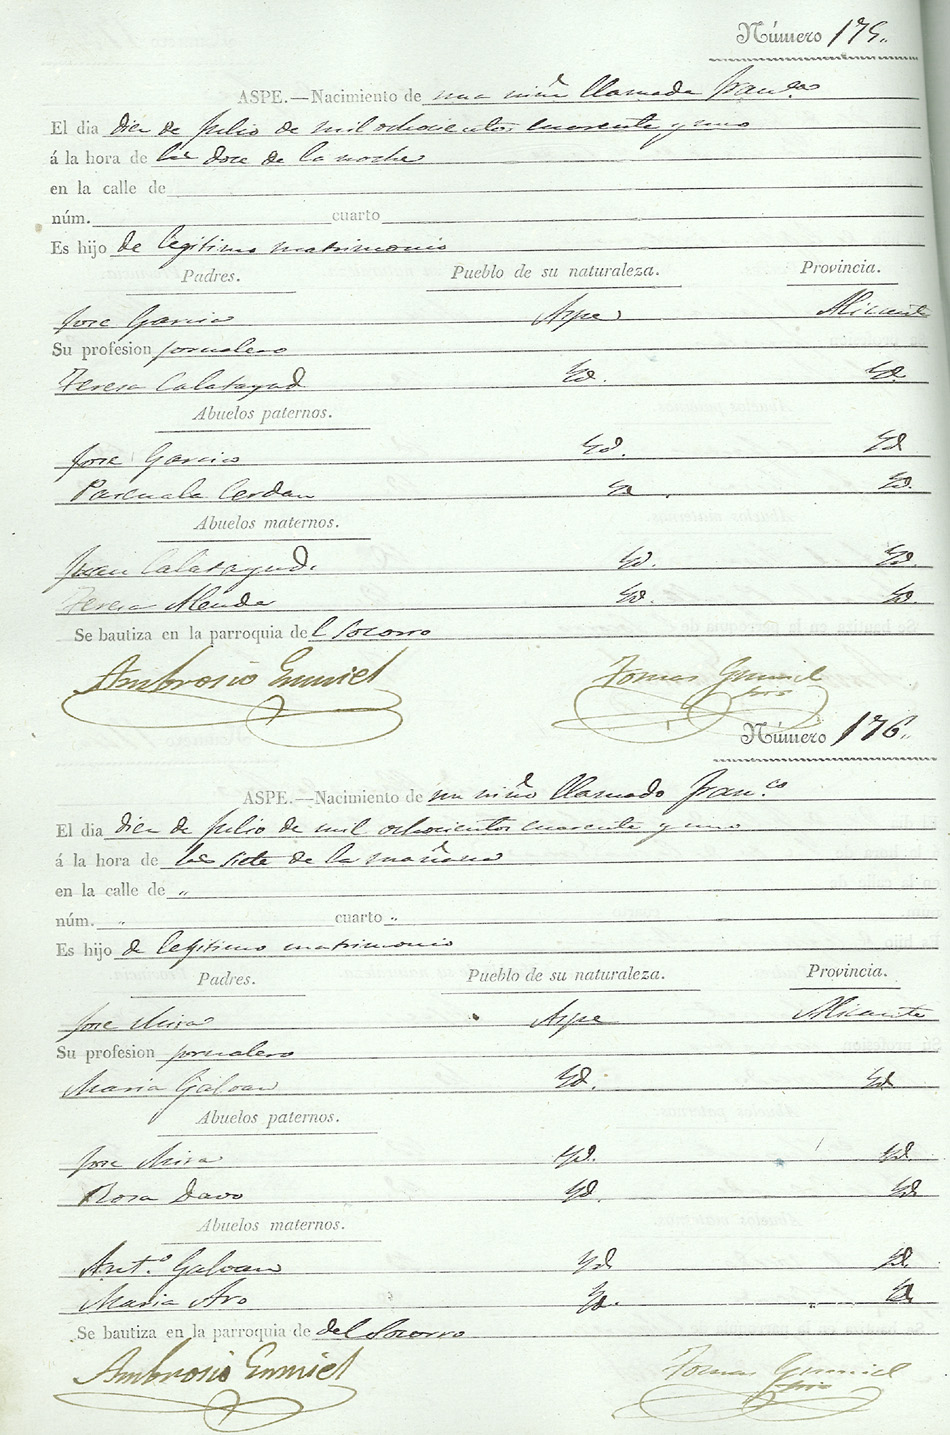 Número 175.
ASPE.—Nacimiento de una niña llamada Fran.ca
El dia diez de Julio de mil ochocientos cuarenta y uno
á la hora de las doce de la noche
en la calle de
núm. cuarto
Es hijo de legitimo matrimonio
Padres. Pueblo de su naturaleza. Provincia.
Jose Garcia Aspe Alicante
Su profesion jornalero
Teresa Calatayud Yd. Yd.
Abuelos paternos.
Jose Garcia Yd. Yd
Pascuala Cerdan Yd. Yd.
Abuelos maternos.
Juan Calatayud. Yd. Yd.
Teresa Alenda Yd. Yd.
Se bautiza en la parroquia del Socorro
Ambrosio Gumiel Tomas Gumiel
Número 176.
ASPE.—Nacimiento de un niño llamado Fran.co
El dia diez de Julio de mil ochocientos cuarenta y uno
á la hora de las siete de la mañana
en la calle de "
núm. " cuarto "
Es hijo de legitimo matrimonio
Padres. Pueblo de su naturaleza. Provincia.
Jose Mira Aspe Alicante
Su profesion jornalero
Maria Galvan Yd. Yd
Abuelos paternos.
Jose Mira Yd. Yd.
Rosa Davo Yd. Yd
Abuelos maternos.
Ant.o Galvan Yd Yd.
Maria Aro Yd. Yd.
Se bautiza en la parroquia de del Socorro
Ambrosio Gumiel Tomas Gumiel